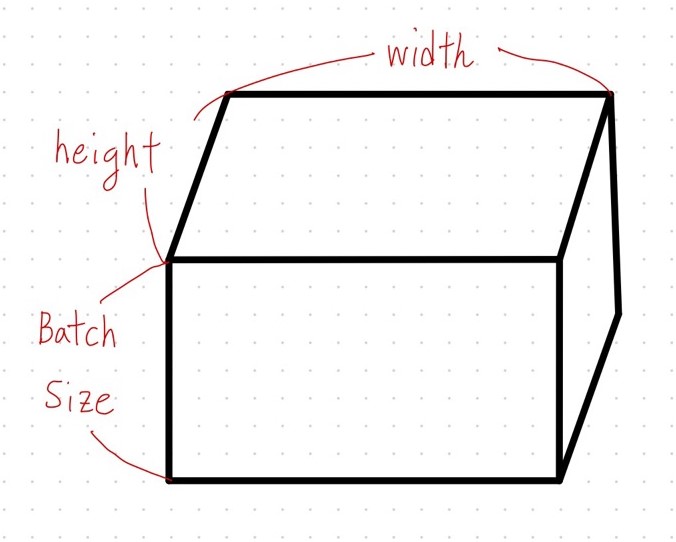 width
height
Batch
Size